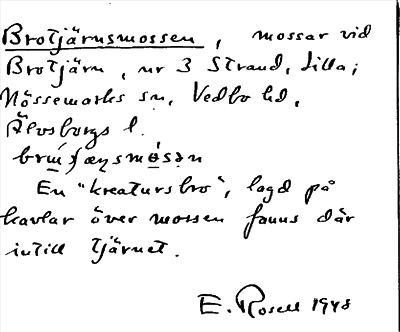 Brotjärnsmossen, mossar vid
Brotjärn, nr 3 Strand, Lilla;
Nössemarks sn, Vedbo hd,
Älvsborgs l.
En "kreatursbro", lagd på
kavlar över mossen fanns där
intill tjärnet.
E. Rosell 1948